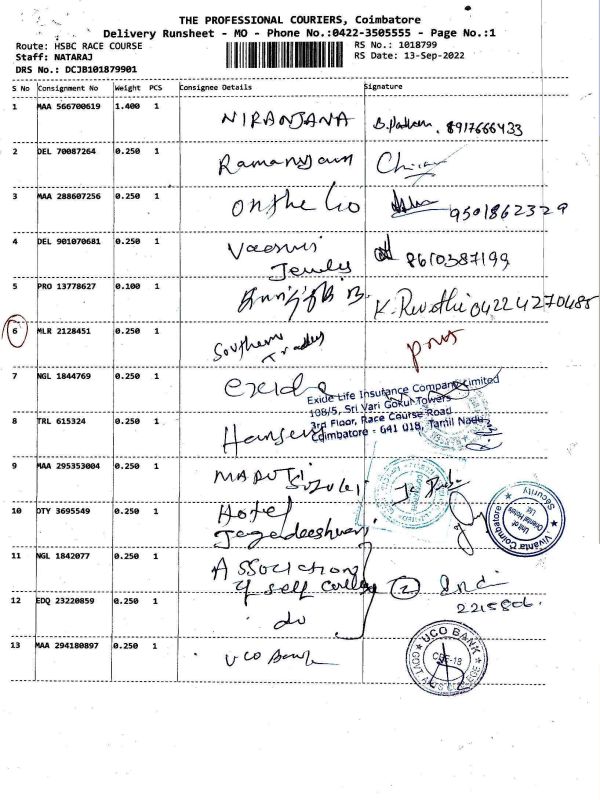 THE PROFESSIONAL COURIERS, Coimbatore
Delivery Runsheet - MO - Phone No.:0422-3505555 - Page No.:1
Route: HSBC RACE COURSE
RS No.: 1018799
Staff: NATARAJ
RS Date: 13-Sep-2022
DRS No.: DCJB101879901
S No Consignment No Weight PCS Consignee Details Signature
1 MAA 566700619 1.400 1 NIRANJANA 8917666433
2 DEL 70087264 0.250 1
3 MAA 288607256 0.250 1 on the Go 9501862329
4 DEL 901070681 0.250 1 8610387199
5 PRO 13778627 0.100 1 K. Revathi 04224270485
6 MLR 2128451 0.250 1 Southern
7 NGL 1844769 0.250 1 exide
Exide Life Insurance Company Limited
108/5, Sri Vari Gokul Towers
3rd Floor, Race Course Road
Coimbatore - 641 018, Tamil Nadu
8 TRL 615324 0.250 1
9 MAA 295353004 0.250 1 MARUTI
SUZUKI
10 DTY 3695549 0.250 1 Hotel
Jagadeeshwari
Vivanta Coimbatore
Unit of
Oriental Hotels
Ltd
Security
11 NGL 1842077 0.250 1 Association
of self 2
12 EDQ 23220859 0.250 1 do 2215806.
13 MAA 294180897 0.250 1 UCO Bank
UCO BANK